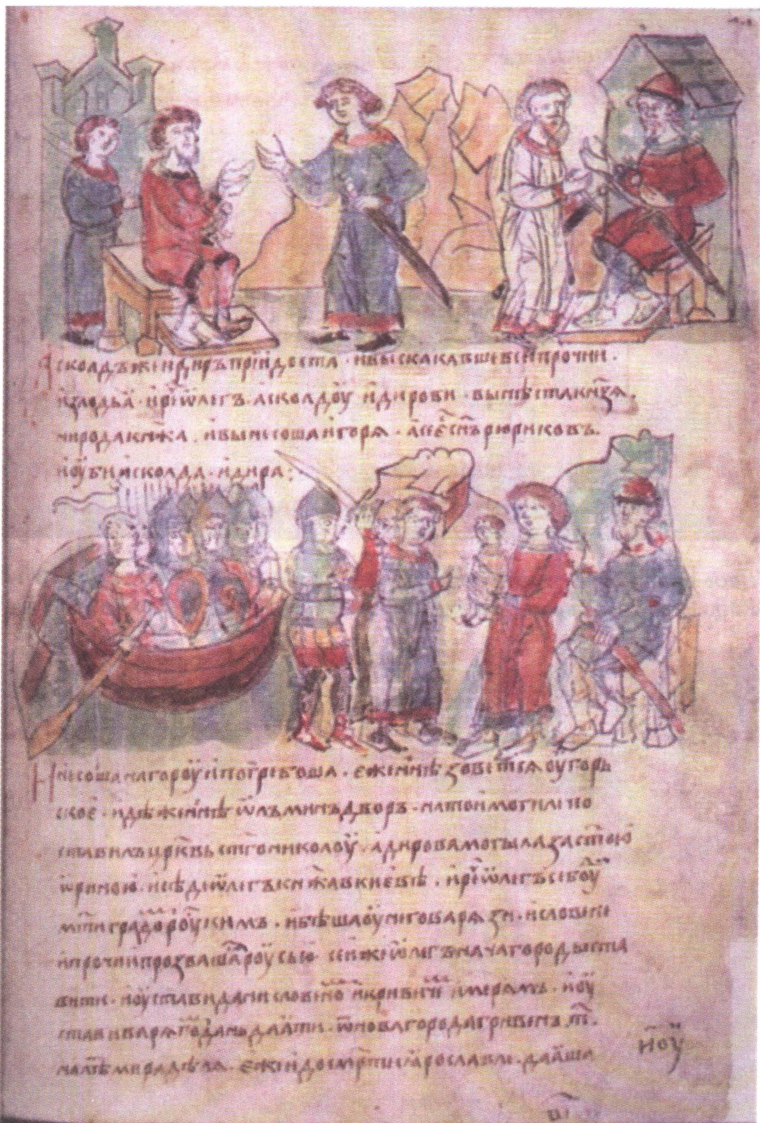 Асколдъ же и диръ прiидоста · и выскакавше вси прочии ·
излодьа · и рⷱ҇е ѡлегъ асколдоу и дирови · вы нѣста кнѧзѧ ·
ни рода кнѧжа · и вынесоша игорѧ · а се е҇ сн҃ъ рюриковъ ·
и оубиша асколда и дира :
И несоша на гороу и погребоша · еже нн҃ѣ зоветьсѧ оугорь
ское · идѣже нн҃ѣ ѡлъминъ дворъ · на тои могилѣ по
ставилъ цр҃квь ст҃го николоу · а дирова могыла за ст҃ою
ѡриною · и сѣде ѡлегъ кнѧжа в киевѣ · и рⷱ҇е ѡлегъ се боуⷣ
мт҃и градоⷨ роускимъ · и бѣша оу него варѧзи · и словене
и прочии прозвашасѧ роусью · сеи же ѡлегъ нача городы ста
вити · и оустави дани словеноⷨ и кривичеⷨ и мерѧмъ · и оу
стави варѧгоⷨ дань даѧти · ѿ новагорода гривенъ т҃ ·
на лѣт мира дѣлѧ · еже и до смр҃ти ӕрославлѧ · даӕша
и оу